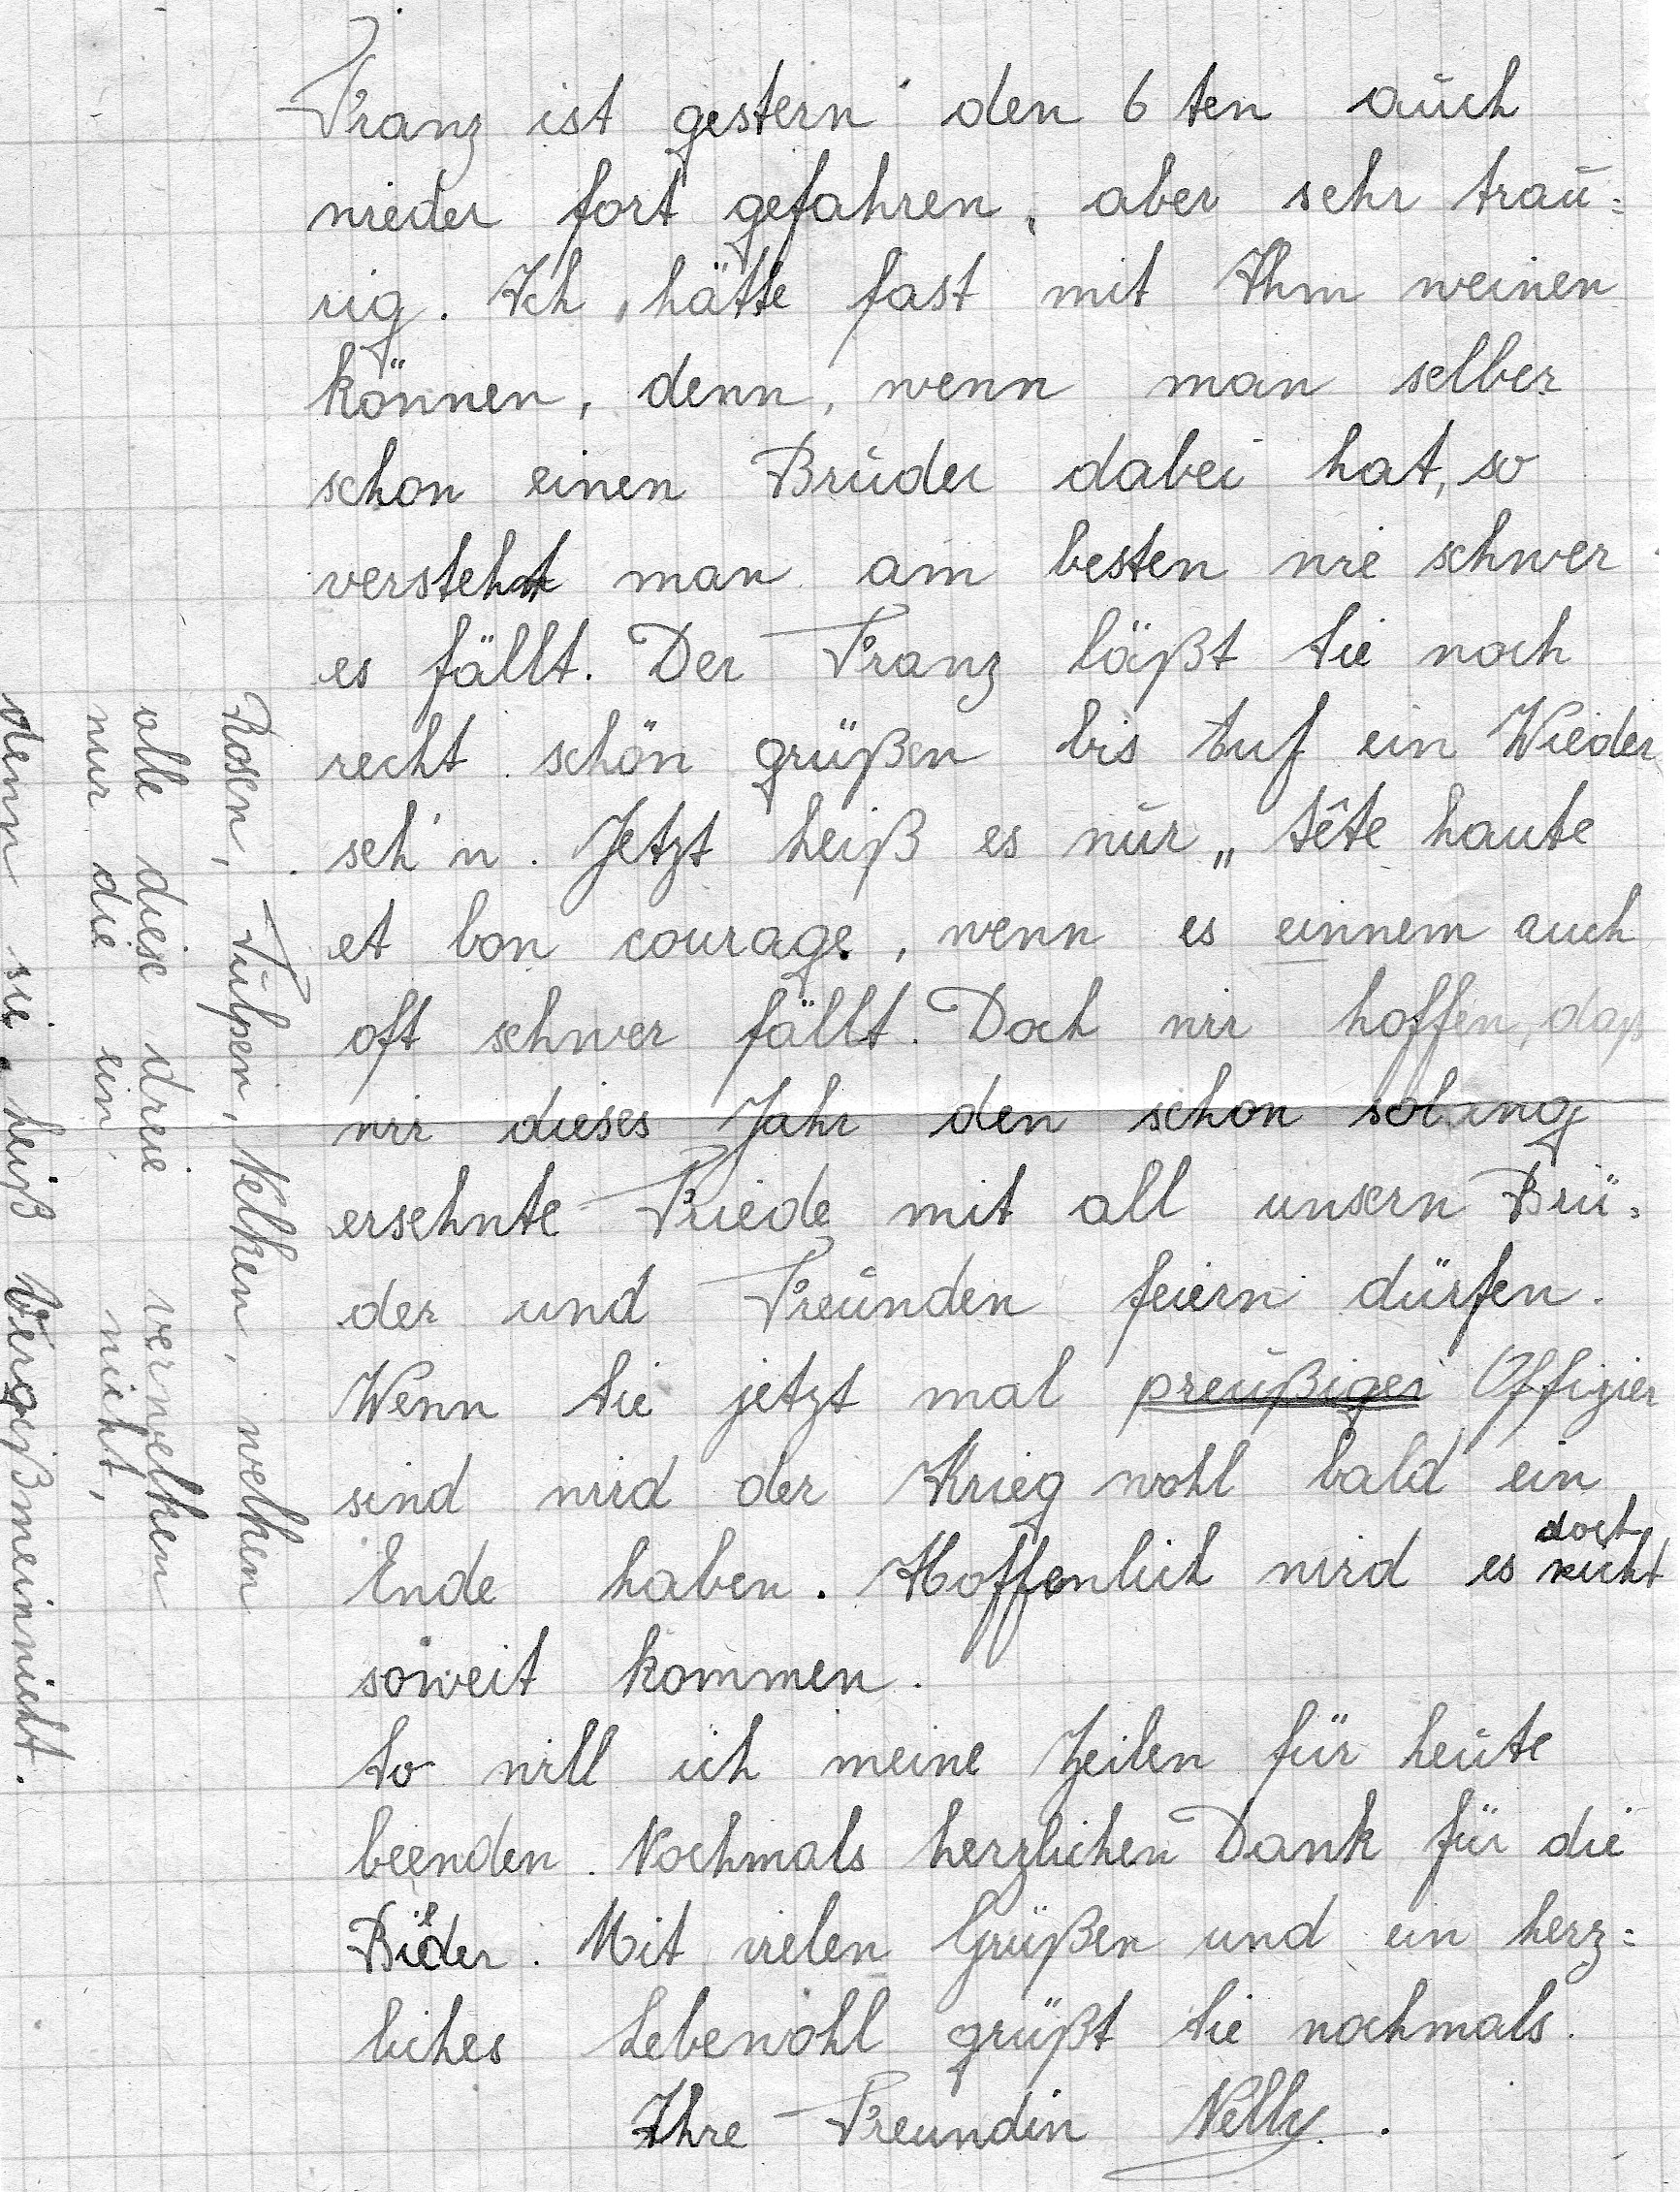 Franz ist gestern den 6ten auch
wieder fort gefahren, aber sehr trau=
rig. Ich hätte fast mit Ihm weinen
können, denn, wenn man selber
schon einen Bruder dabei hat, so
versteht man am besten wie schwer
es fällt. Der Franz läßt Sie noch
recht schön grüßen bis Auf ein Wieder
seh'n. Jetzt heiß es nur „ tête haute
et bon courage, wenn es einnem auch
oft schwer fällt. Doch wir hoffen, daß
wir dieses Jahr den schon solang
ersehnte Friede mit all unsern Brü=
der und Freunden feiern dürfen.
Wenn Sie jetzt mal preußiger Offizier
sind wird der Krieg wohl bald ein
Ende haben. Hoffenlich wird es doch nicht
soweit kommen.
So will ich meine Zeilen für heute
beenden. Nochmals herzlichen Dank für die
Bilder. Mit vielen Grüßen und ein herz=
liches Lebewohl grüßt Sie nochmals.
Ihre Freundin Nelly.
Rosen, Tulpen, Nelken, welken
alle diese dreie verwelken
nur die ein nicht,
denn sie heiß Vergißmeinnicht.